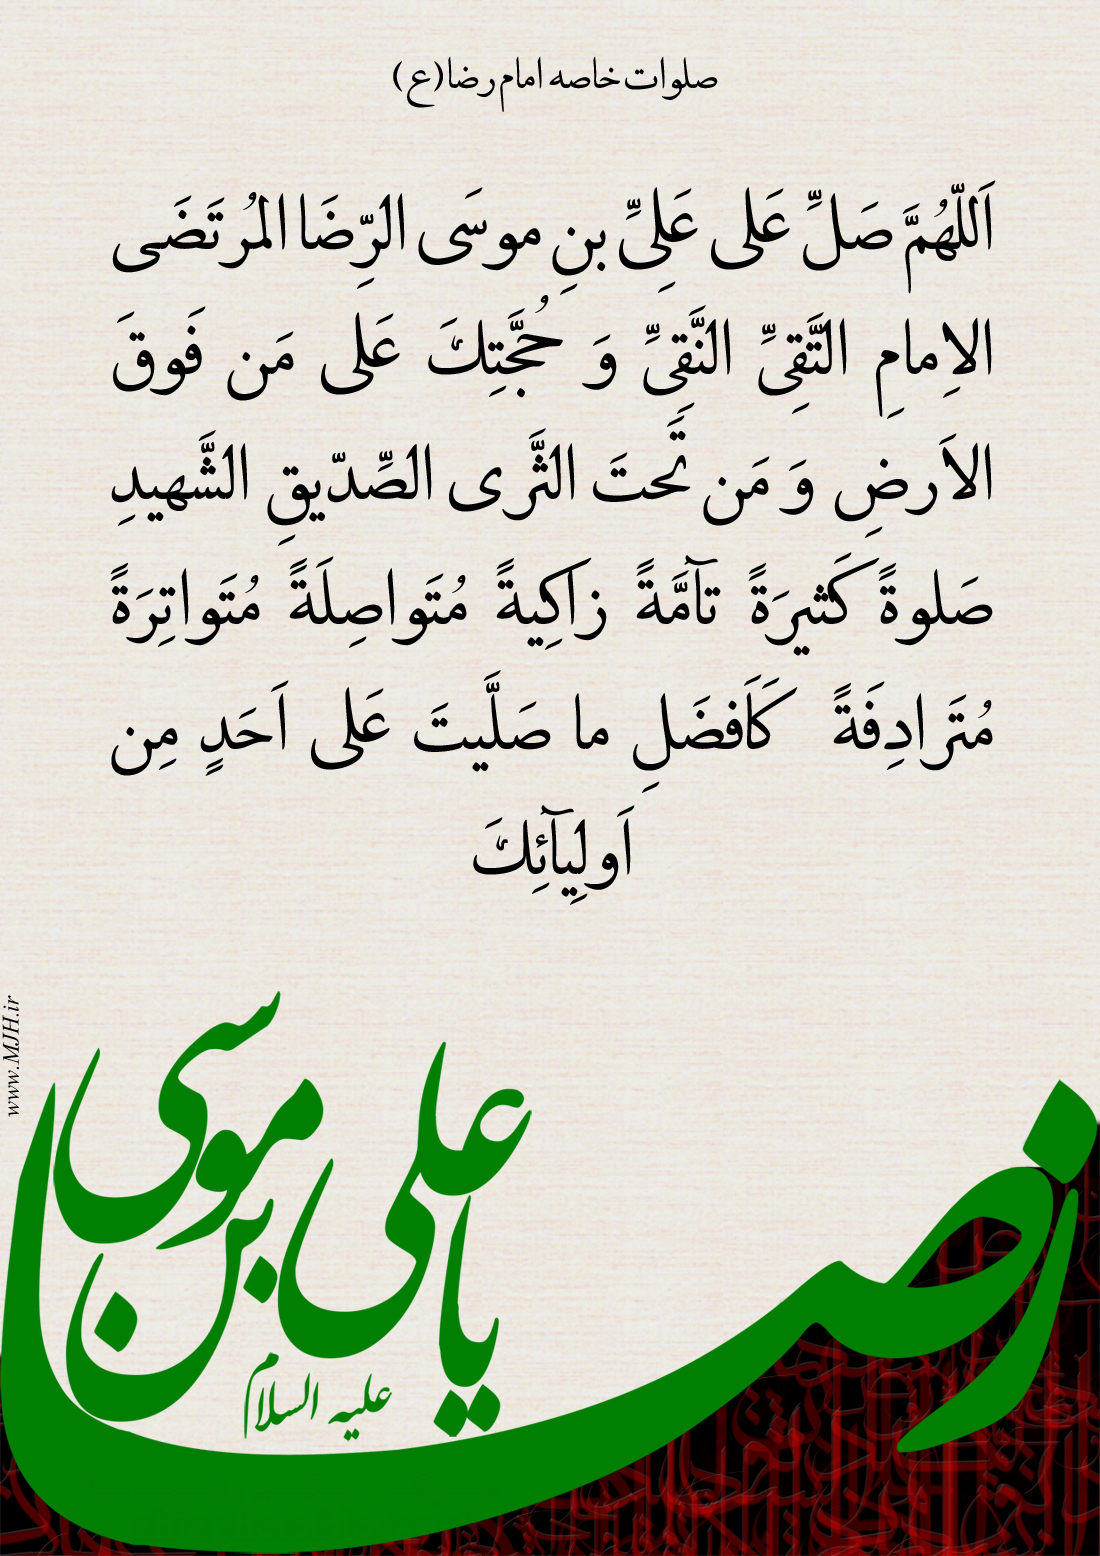 صلوات خاصه امام رضا(ع)
اَللّهُمَّ صَلِّ عَلى عَلِىِّ بنِ موسَى الرِّضَا المُرتَضَى
الاِمامِ التَّقِىِّ النَّقِىِّ وَ حُجَّتِكَ عَلى مَن فَوقَ
الاَرضِ وَ مَن تَحتَ الثَّرى الصِّدّيقِ الشَّهيدِ
صَلوةً كَثيرَةً تآمَّةً زاكِيةً مُتَواصِلَةً مُتَواتِرَةً
مُتَرادِفَةً كَاَفضَلِ ما صَلَّيتَ عَلى اَحَدٍ مِن
اَولِيآئِكَ
يا على بن موسى
رضا
عليه السلام
www.MJH.ir